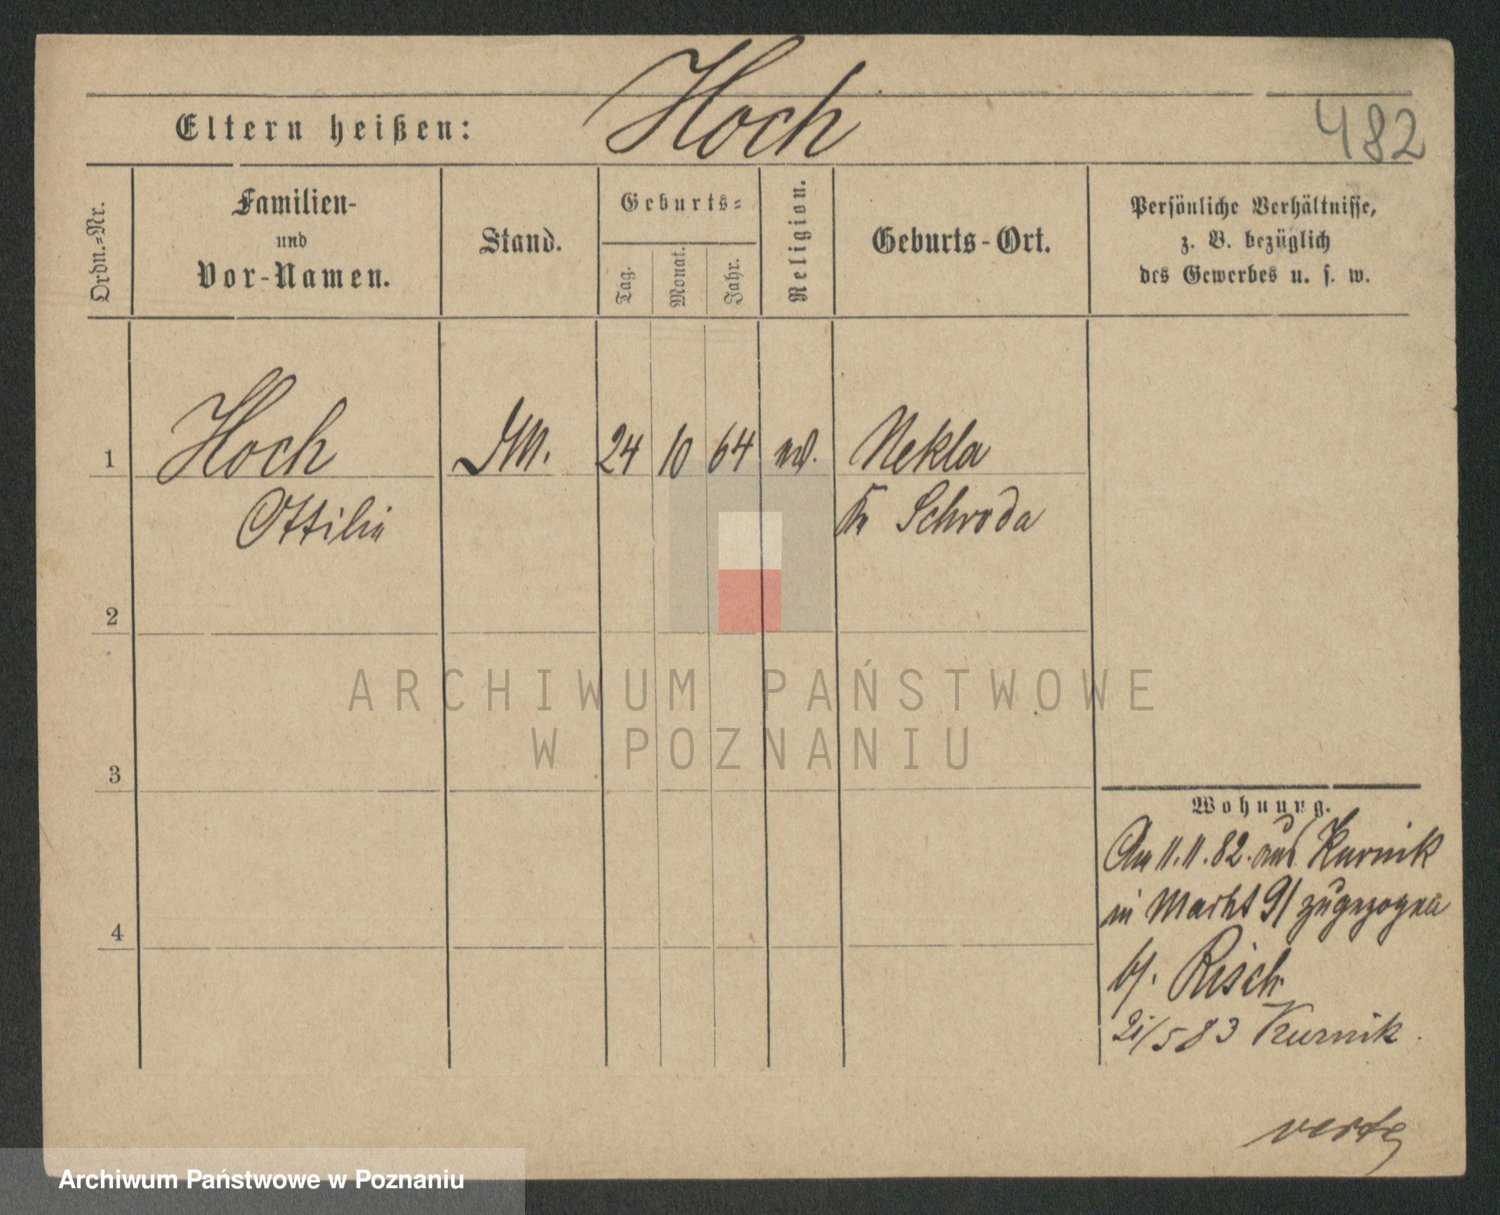 Hoch
Eltern heißen:
482
Ordn.=Nr.
Familien-
und
Vor-Namen.
Stand.
Geburts=
Tag.
Monat.
Jahr.
Religion.
Geburts-Ort.
Persönliche Verhältnisse,
z. B. bezüglich
des Gewerbes u. s. w.
1
Hoch
24
10
64
Nekla
Ottilie
Kr Schroda
2
ARCHIWUM PAŃSTWOWE
W POZNANIU
3
Wohnung.
Am 11.11.82. aus Kurnik
in Markt 91 zugezogen
4
b/. Risch
21/5 83 Kurnik.
verte
Archiwum Państwowe w Poznaniu